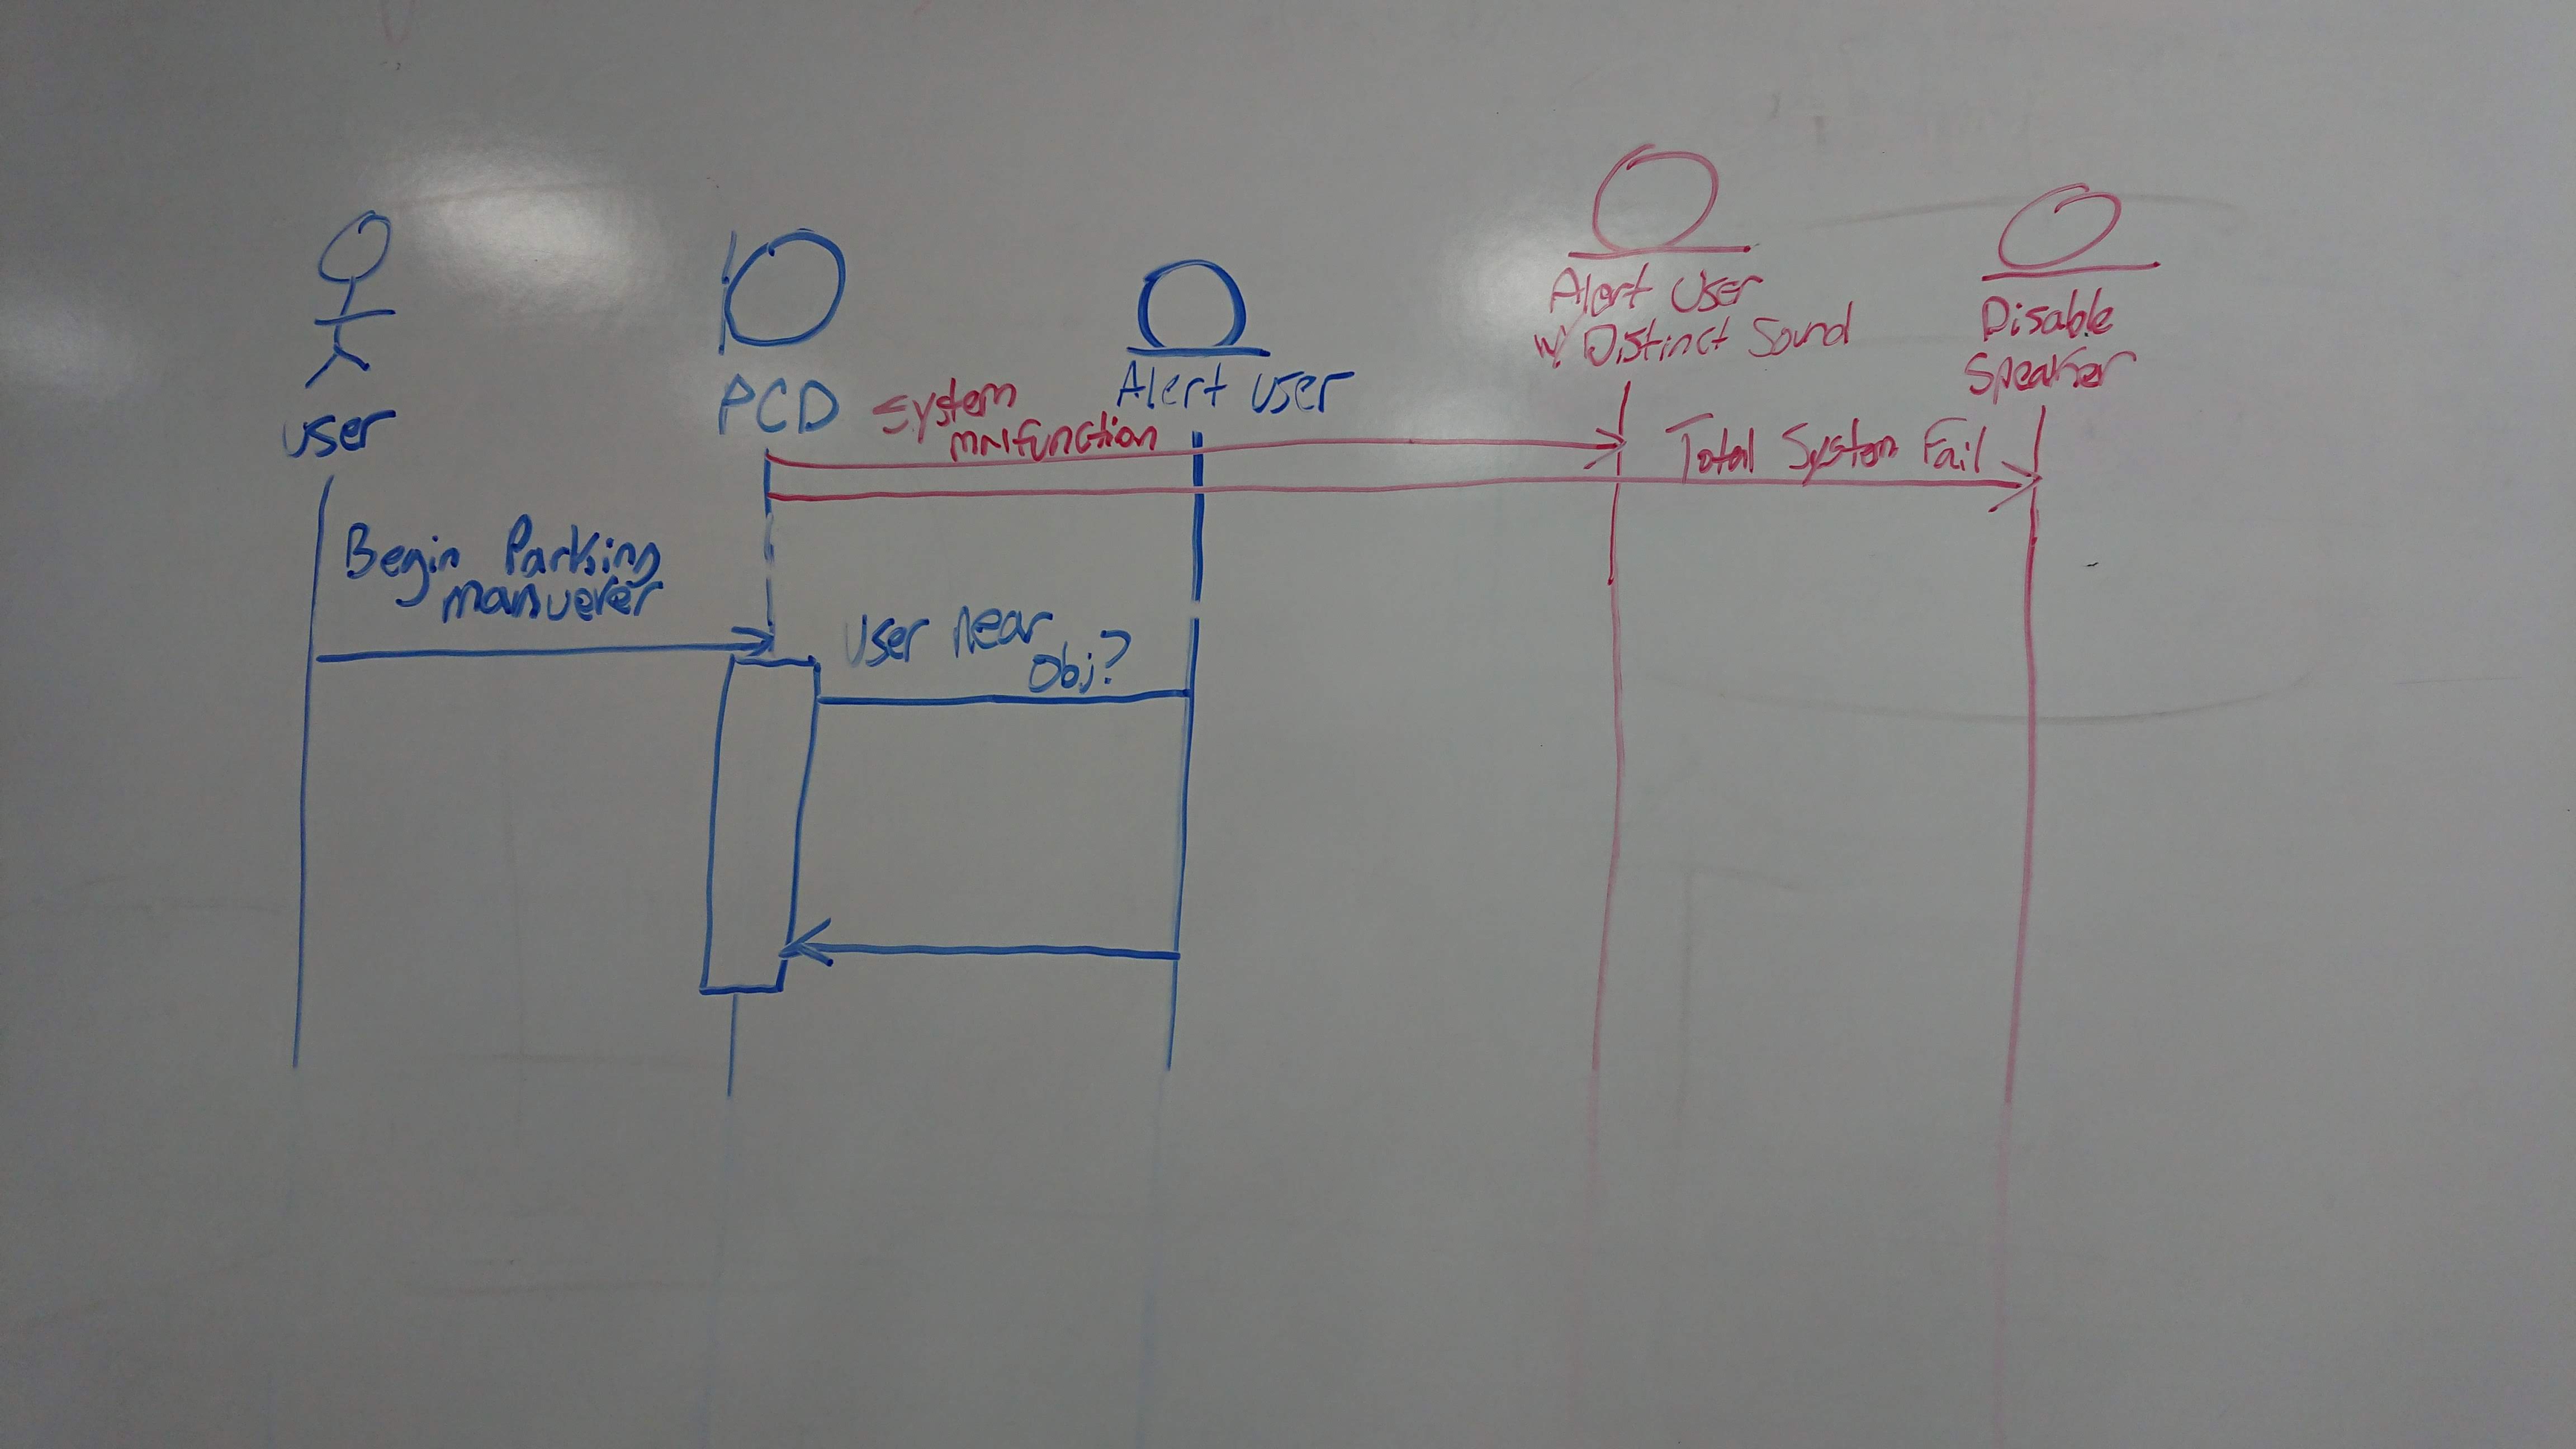 User
PCD
Alert User
Alert User
w/ Distinct Sound
Disable
Speaker
System
malfunction
Total System Fail
Begin Parking
manuever
User near
Obj?